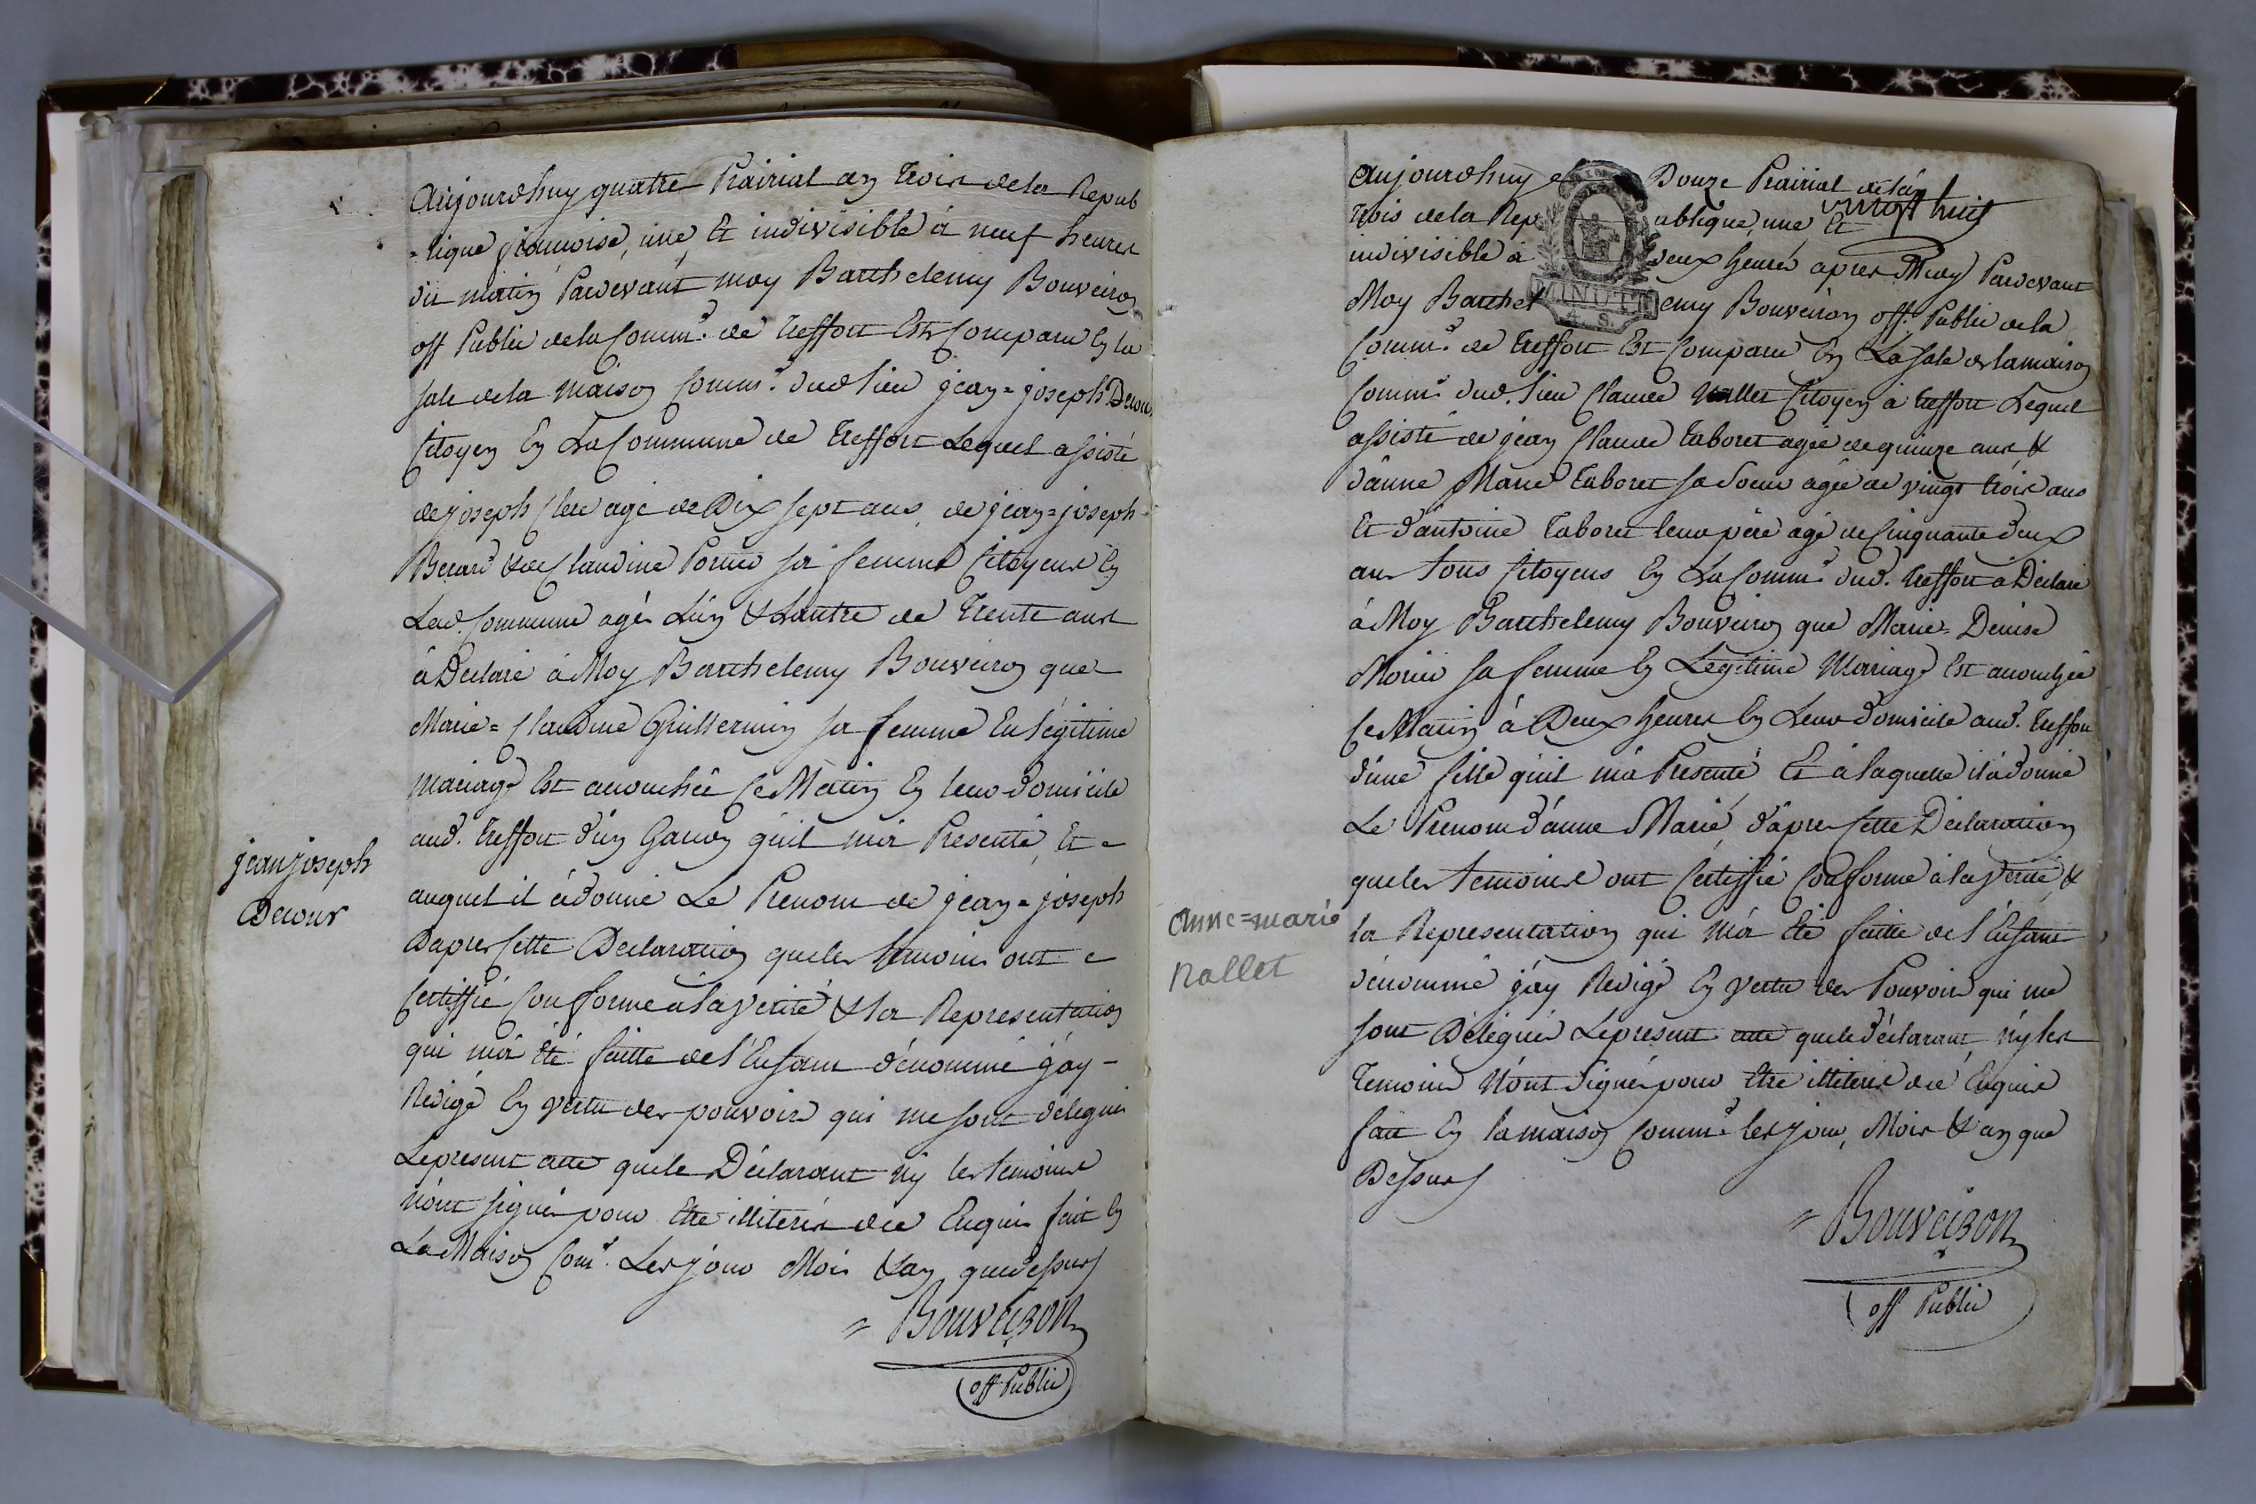 Aujourdhuy quatre Prairial an trois dela Repub
=lique francoise, une, Et indivisible à neuf heures
du matin Pardevant moy Barthelemy Bouveiron
off Public dela Comm.e de treffort Est Comparu En la
sale dela maison Comm.e dud lieu jean=joseph Decour
Citoyen En La Commune de treffort Lequel assisté
de joseph Clerc agé de Dix sept ans, de jean=joseph
Berard & de Claudine sa femme Citoyens En
Lad. Commune agés L'un & Lautre de trente ans
à Declaré à Moy Barthelemy Bouveiron que
Marie=Claudine Guillermin sa femme En légitime
mariage Est acouchée Ce Matin En leur domicile
aud. treffort d'un Garcon qu'il m'a Presenté, Et =
auquel il à donné Le Prenom de jean=joseph
Daprés Cette Declaration que les temoins ont
Certiffié Conforme à la verité & la Representation
qui m'a Eté faitte de l'Enfant dénommé j'ay -
Redigé En vertu des pouvoirs qui me sont délegués
Le present acte que le Déclarant ny les temoins
n'ont signés pour Etre illiterés de ce Enquis fait En
La Maison Com.e Les jour Mois & an que dessus
Bouveiron
off Public
jean joseph
Decour
Aujourdhuy Douze Prairial de l'an
vingt huit
trois dela Republique, une Et
indivisible à deux heures apres Midy Pardevant
Moy Barthelemy Bouveiron off. Public dela
Comm.e de treffort Est Comparu En La sale de la maison
Comm.e dud. lieu Claude Nallet Citoyen à treffort Lequel
assisté de jean Claude taboret agée de quinze ans &
d'anne Marie taboret sa soeur agée de vingt trois ans
Et d'antoine taboret leur père agé de Cinquante deux
ans tous Citoyens En La Comm.e dud. treffort à Déclaré
à Moy Barthelemy Bouveiron que Marie=Denise
sa femme En Légitime Mariage Est acouchée
Ce Matin à Deux heures En Leur domicile aud. treffort
d'une fille qu'il m'à Presenté Et à laquelle il à donné
Le Prenom d'anne Marie, d'apres Cette Déclaration
que les temoins ont Certiffié Conforme à la verité, &
la Representation qui m'à Eté faitte de l'Enfant
dénommé j'ay Redigé En vertu des Pouvoirs qui me
sont Délegués Le present acte que le déclarant ny les
temoins N'ont signés pour Etre illiterés de ce Enquis
fait En la maison Comm.e les jour, Mois & an que
Dessus
Bouveiron
off Public
anne=marie
nallet
MINUTE
4. S.